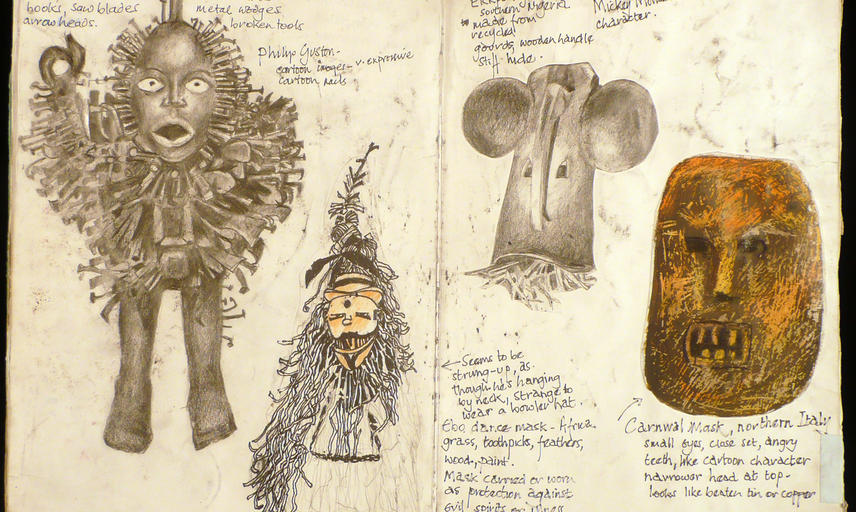 hooks, saw blades
arrowheads.
metal wedges
broken tools
Philip Guston-
cartoon images - v. expressive
cartoon nails
southern Nigeria
made from
recycled
gourds, wooden handle
stiff hide.
Mickey
character.
← Seems to be
strung-up, as
though he's hanging
by neck, strange to
wear a bowler hat.
Ebo dance mask - Africa.
grass, toothpicks, feathers,
wood, paint.
Mask carried or worn
as protection against
evil spirits or illness
Carnival Mask, northern Italy
small eyes, close set, angry
teeth, like cartoon character
narrower head at top-
looks like beaten tin or copper